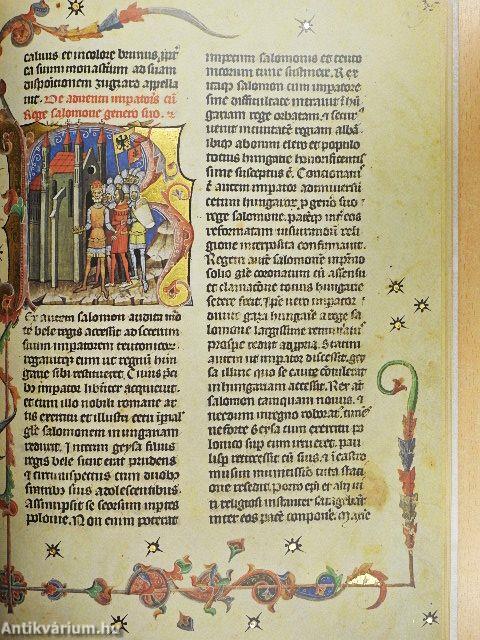 calvus et incolore brunus, ppt
ca suum monasterium ad suam
dispositionem zugrard appella
vit. De adventu imperatoris cum
Rege salomone genero suo. &
Ex autem salomon audita mor
te bele regis accessit ad socerum
suum imperatorem teutonicorum
rogavitque eum ut regnum hun
garie sibi restitueret. Cuius preci
bus imperator libenter acquievit.
et cum illo nobili romane ar
tis exercitu et illustri
salomonem in ungariam
reduxit. Interim geysa filius
regis bele sicut erat prudens
et circumspectus cum duobus
fratribus suis adolescentibus
assumpsit se seorsum in partes
polonie. Non enim poterat
impetum salomonis et teuto
nicorum tunc sustinere. Rex
itaque salomon cum imperatore
sine difficultate intravit hun
gariam rege orbatam. et secure
venit in civitatem regiam albam
ibique ab omni clero et populo
totius hungarie honorificentis
sime susceptus est.
autem imperator ad universum
cetum hungarorum pro genero suo
rege salomone. pacemque inter eos
reformatam iurisiurandi reli
gione interposita confirmavit.
Regem autem salomonem in paterno
solio gloriose coronatum cum assensu
et clamatione totius hungarie
sedere fecit. Ipse vero imperator
gaza hungarie a rege sa
lomone largissime remuneratus
prospere rediit ad propria. Statim
autem ut imperator discessit. gey
sa illinc quo se caute contulerat
in hungariam accessit. Rex autem
salomon tanquam novus. et
nondum in regno roboratus. timens
ne forte Geysa cum exercitu po
lonico super eum irrueret. pau
lisper recessit cum suis. et in castro
musun munitissimo tuta statione
resedit. Porro episcopi et alii vi
ri religiosi instanter satagebant
inter eos pacem componere. Maxime
Antikvárium.hu